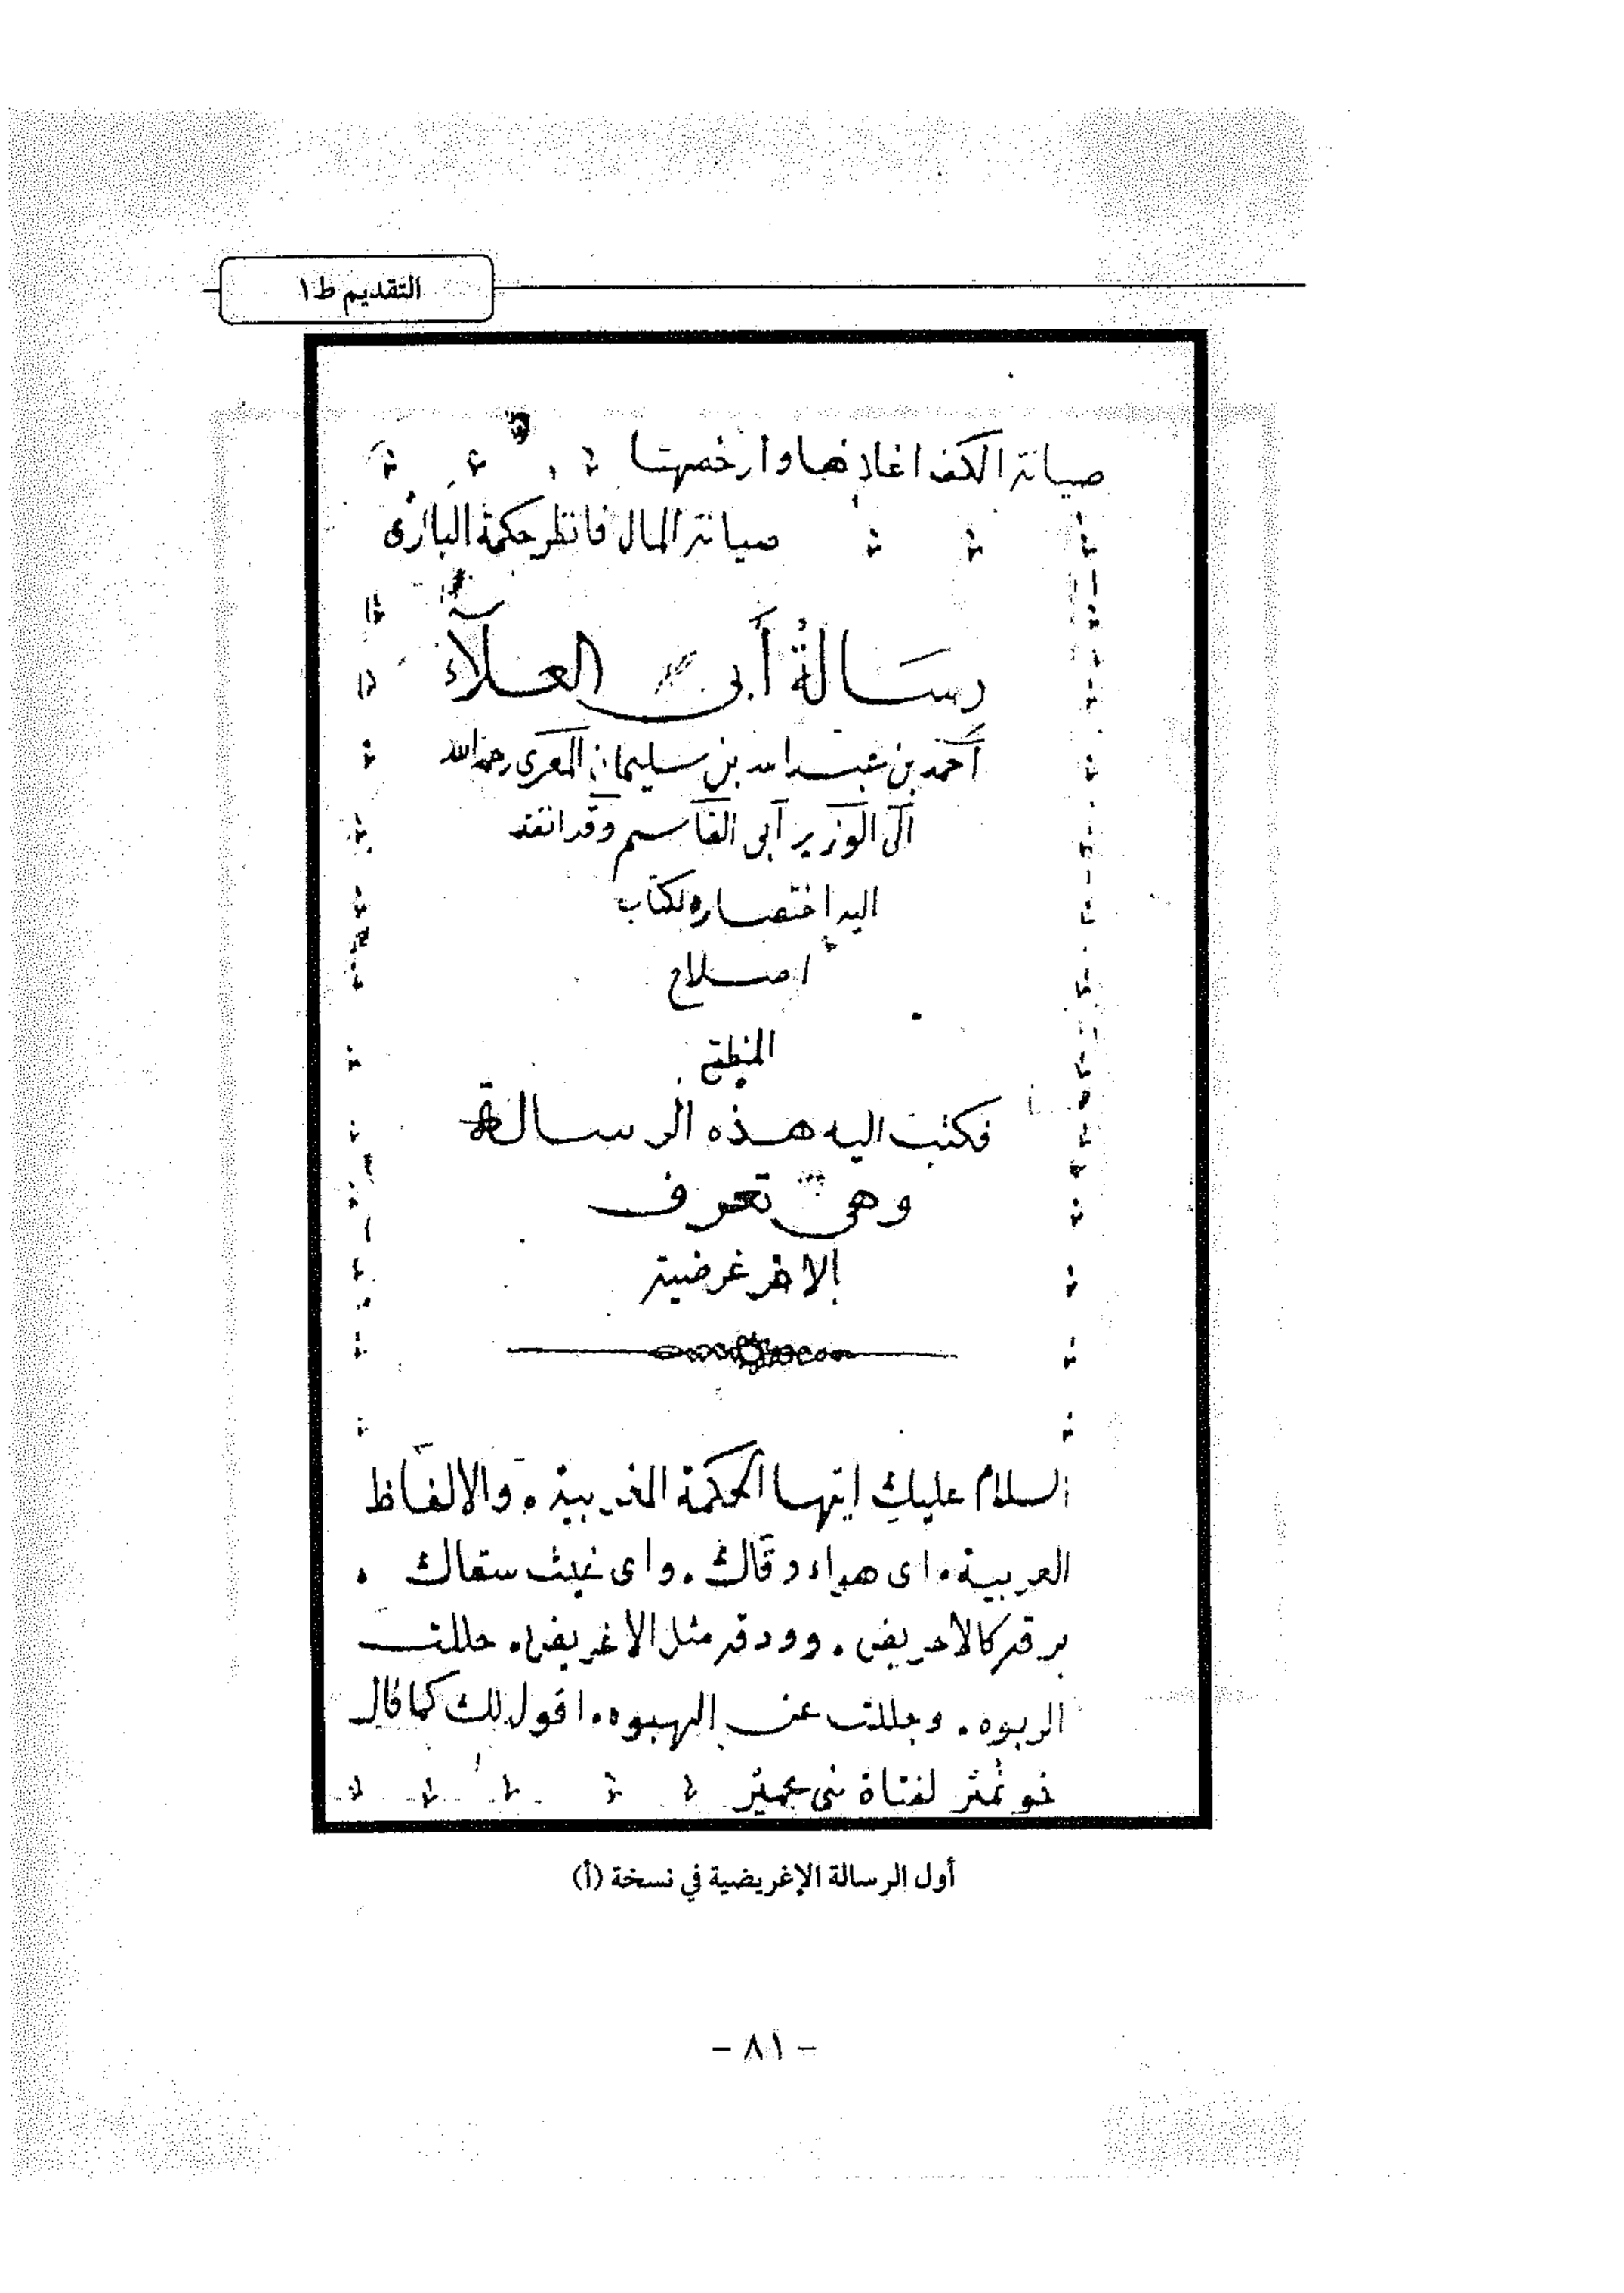 التقديم ط١
صيانة الكف اغلاها وارخصها
صيانة المال فانظر حكمة البارى
رسالة أبي العلآء
أحمد بن عبد الله بن سليمان المعرى رحمه الله
الى الوزير أبى القاسم وقد انفذ
اليه اختصاره لكتاب
اصلاح
المنطق
فكتب اليه هذه الرسالة
وهي تعرف
السلام عليك ايتها الحكمة المغربية . والالفاظ
العربية . اى هواء رقاك . واى غيث سقاك .
برقه كالاحريض . وودقه مثل الاغريض . حللت
الربوه . وجللت عن الهبوه . اقول لك كما قال
لفتاة بنى عمير
أول الرسالة الإغريضية في نسخة (أ)
- ٨١ -